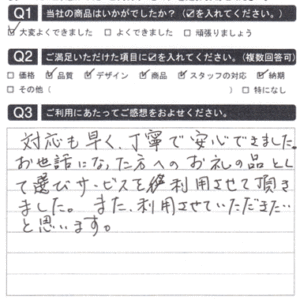 Q1 当社の商品はいかがでしたか？（☑を入れてください。）
☑大変よくできました □よくできました □頑張りましょう
Q2 ご満足いただけた項目に☑を入れてください。（複数回答可）
□価格 ☑品質 ☑デザイン ☑商品 ☑スタッフの対応 ☑納期
□その他（ ） □特になし
Q3 ご利用にあたってご感想をおよせください。
対応も早く、丁寧で安心できました。
お世話になった方へのお礼の品とし
て選びサービスを利用させて頂き
ました。また、利用させていただきたい
と思います。